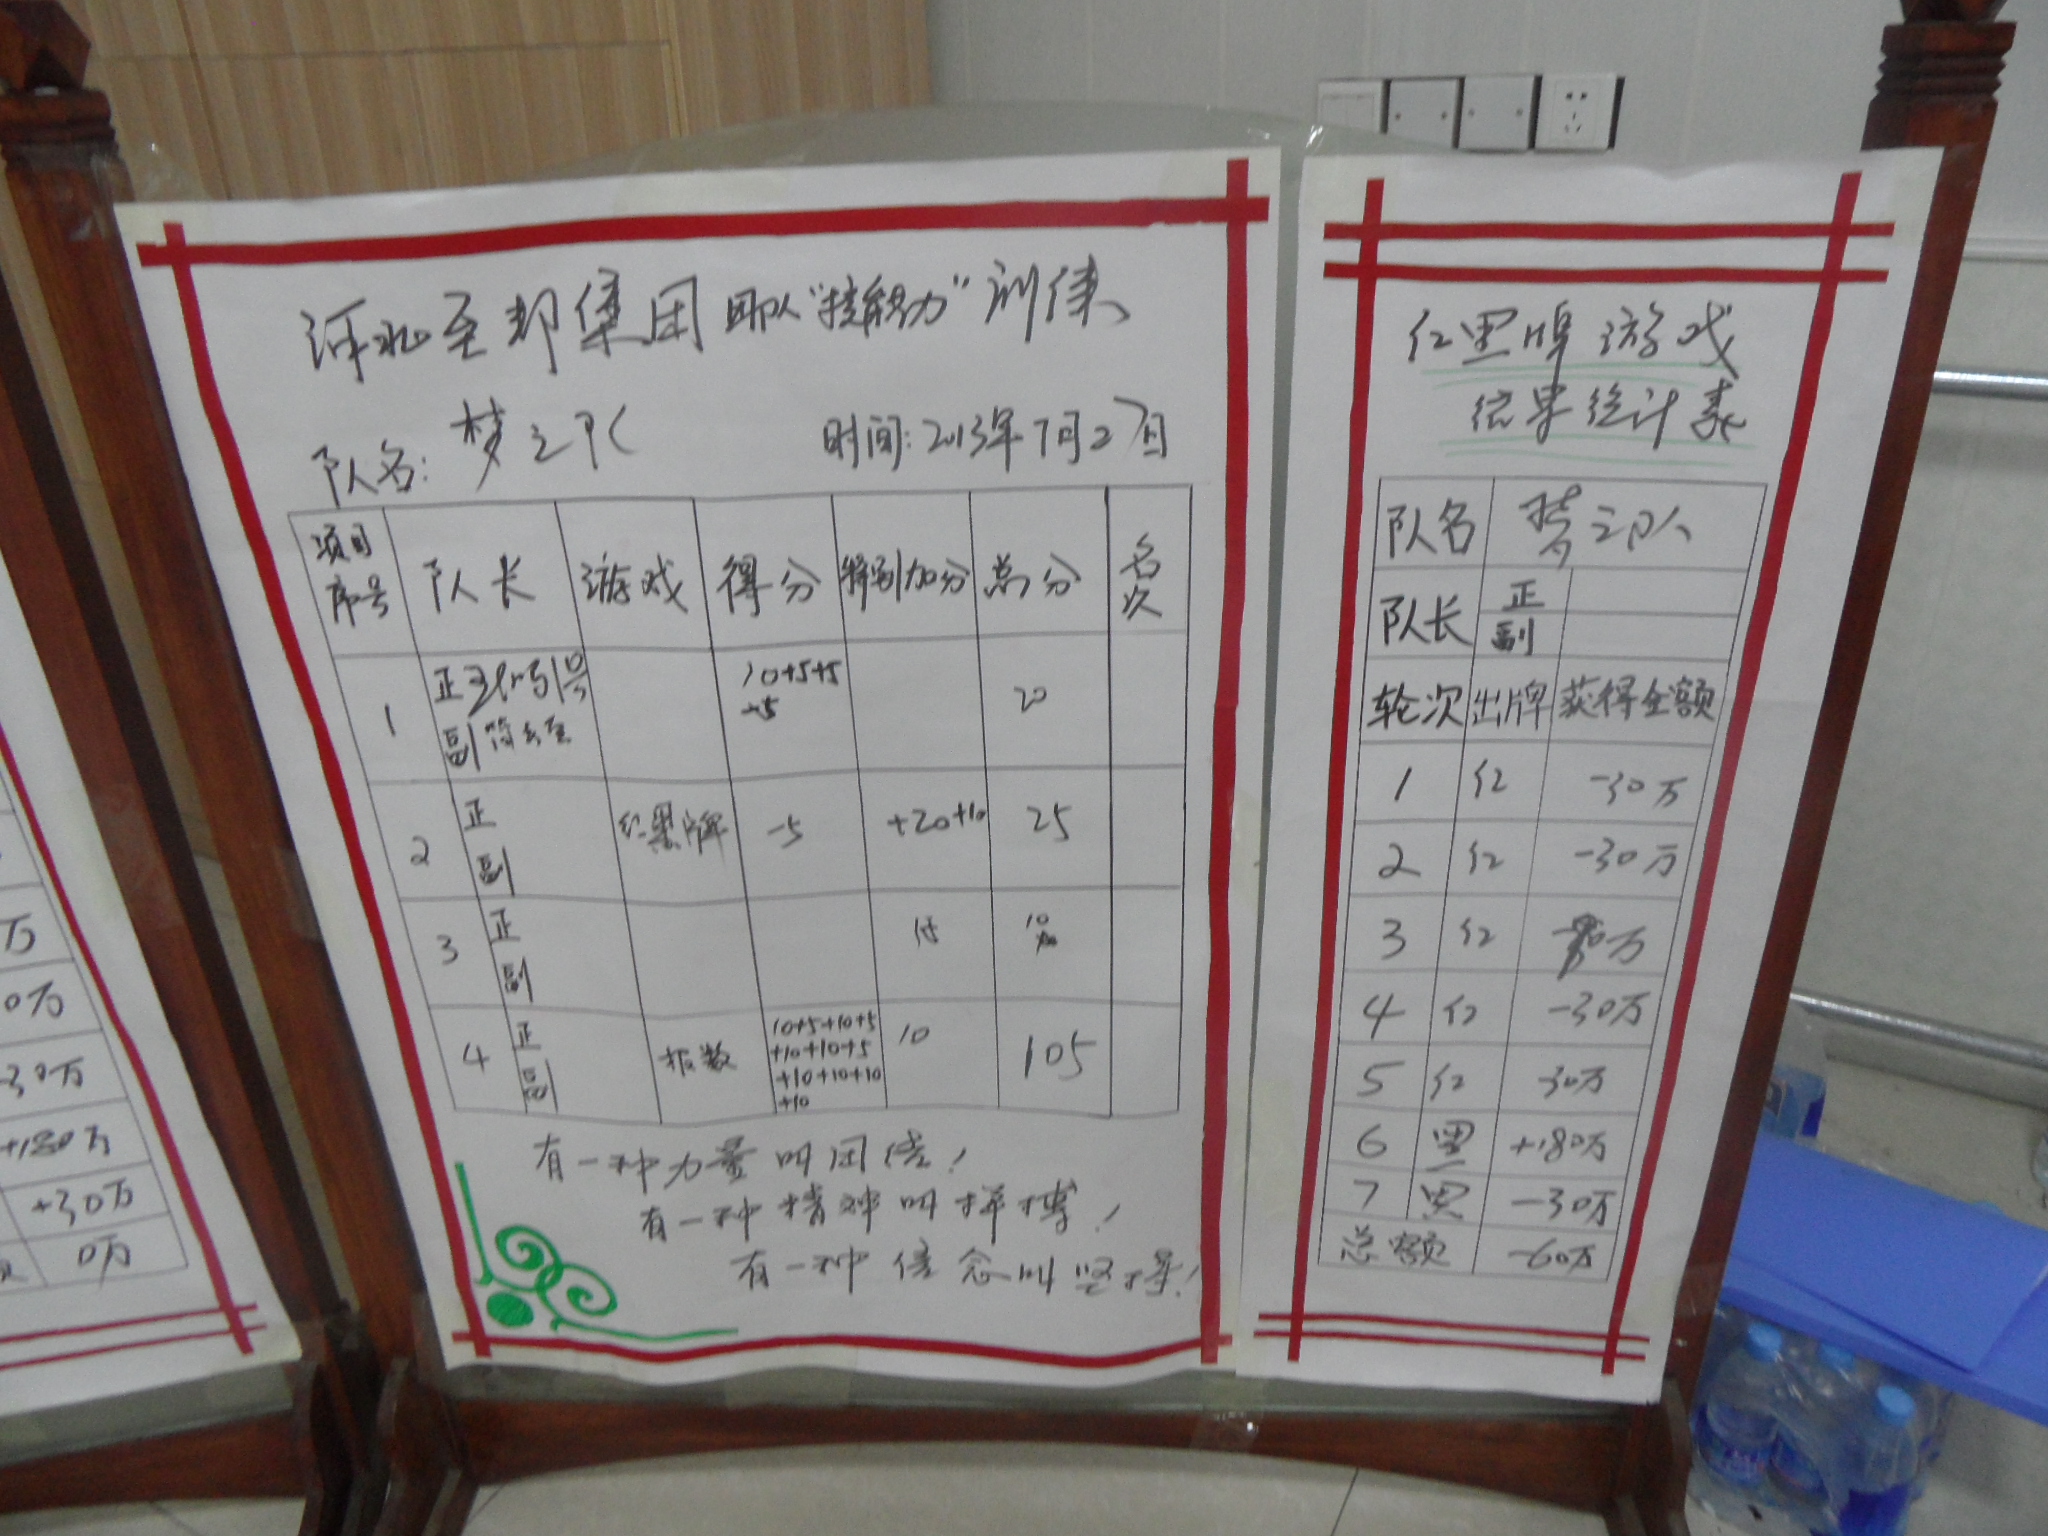 河北至邦集团团队"接能力"训练
队名: 梦之队
时间: 2013年7月27日
项目序号 队长 游戏 得分 特别加分 总分 名次
1 正 副 10+5+5 20
2 正 副 红黑牌 -5 +20+10 25
3 正 副 10
4 正 副 报数 10+5+10+5 +10+10+5 +10+10+10 +10 10 105
有一种力量叫团结!
有一种精神叫拼搏!
有一种信念叫坚持!
红黑牌游戏
结果统计表
队名 梦之队
队长 正 副
轮次 出牌 获得金额
1 红 -30万
2 红 -30万
3 红 万
4 红 -30万
5 红 -30万
6 黑 +180万
7 黑 -30万
总额 -60万
万
0万
-30万
+180万
+30万
0万